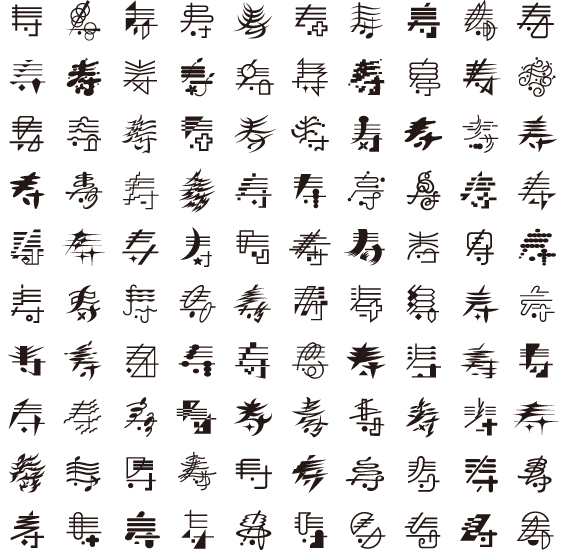 寿寿寿寿寿寿寿寿寿寿
寿寿寿寿寿寿寿寿寿寿
寿寿寿寿寿寿寿寿寿寿
寿寿寿寿寿寿寿寿寿寿
寿寿寿寿寿寿寿寿寿寿
寿寿寿寿寿寿寿寿寿寿
寿寿寿寿寿寿寿寿寿寿
寿寿寿寿寿寿寿寿寿寿
寿寿寿寿寿寿寿寿寿寿
寿寿寿寿寿寿寿寿寿寿